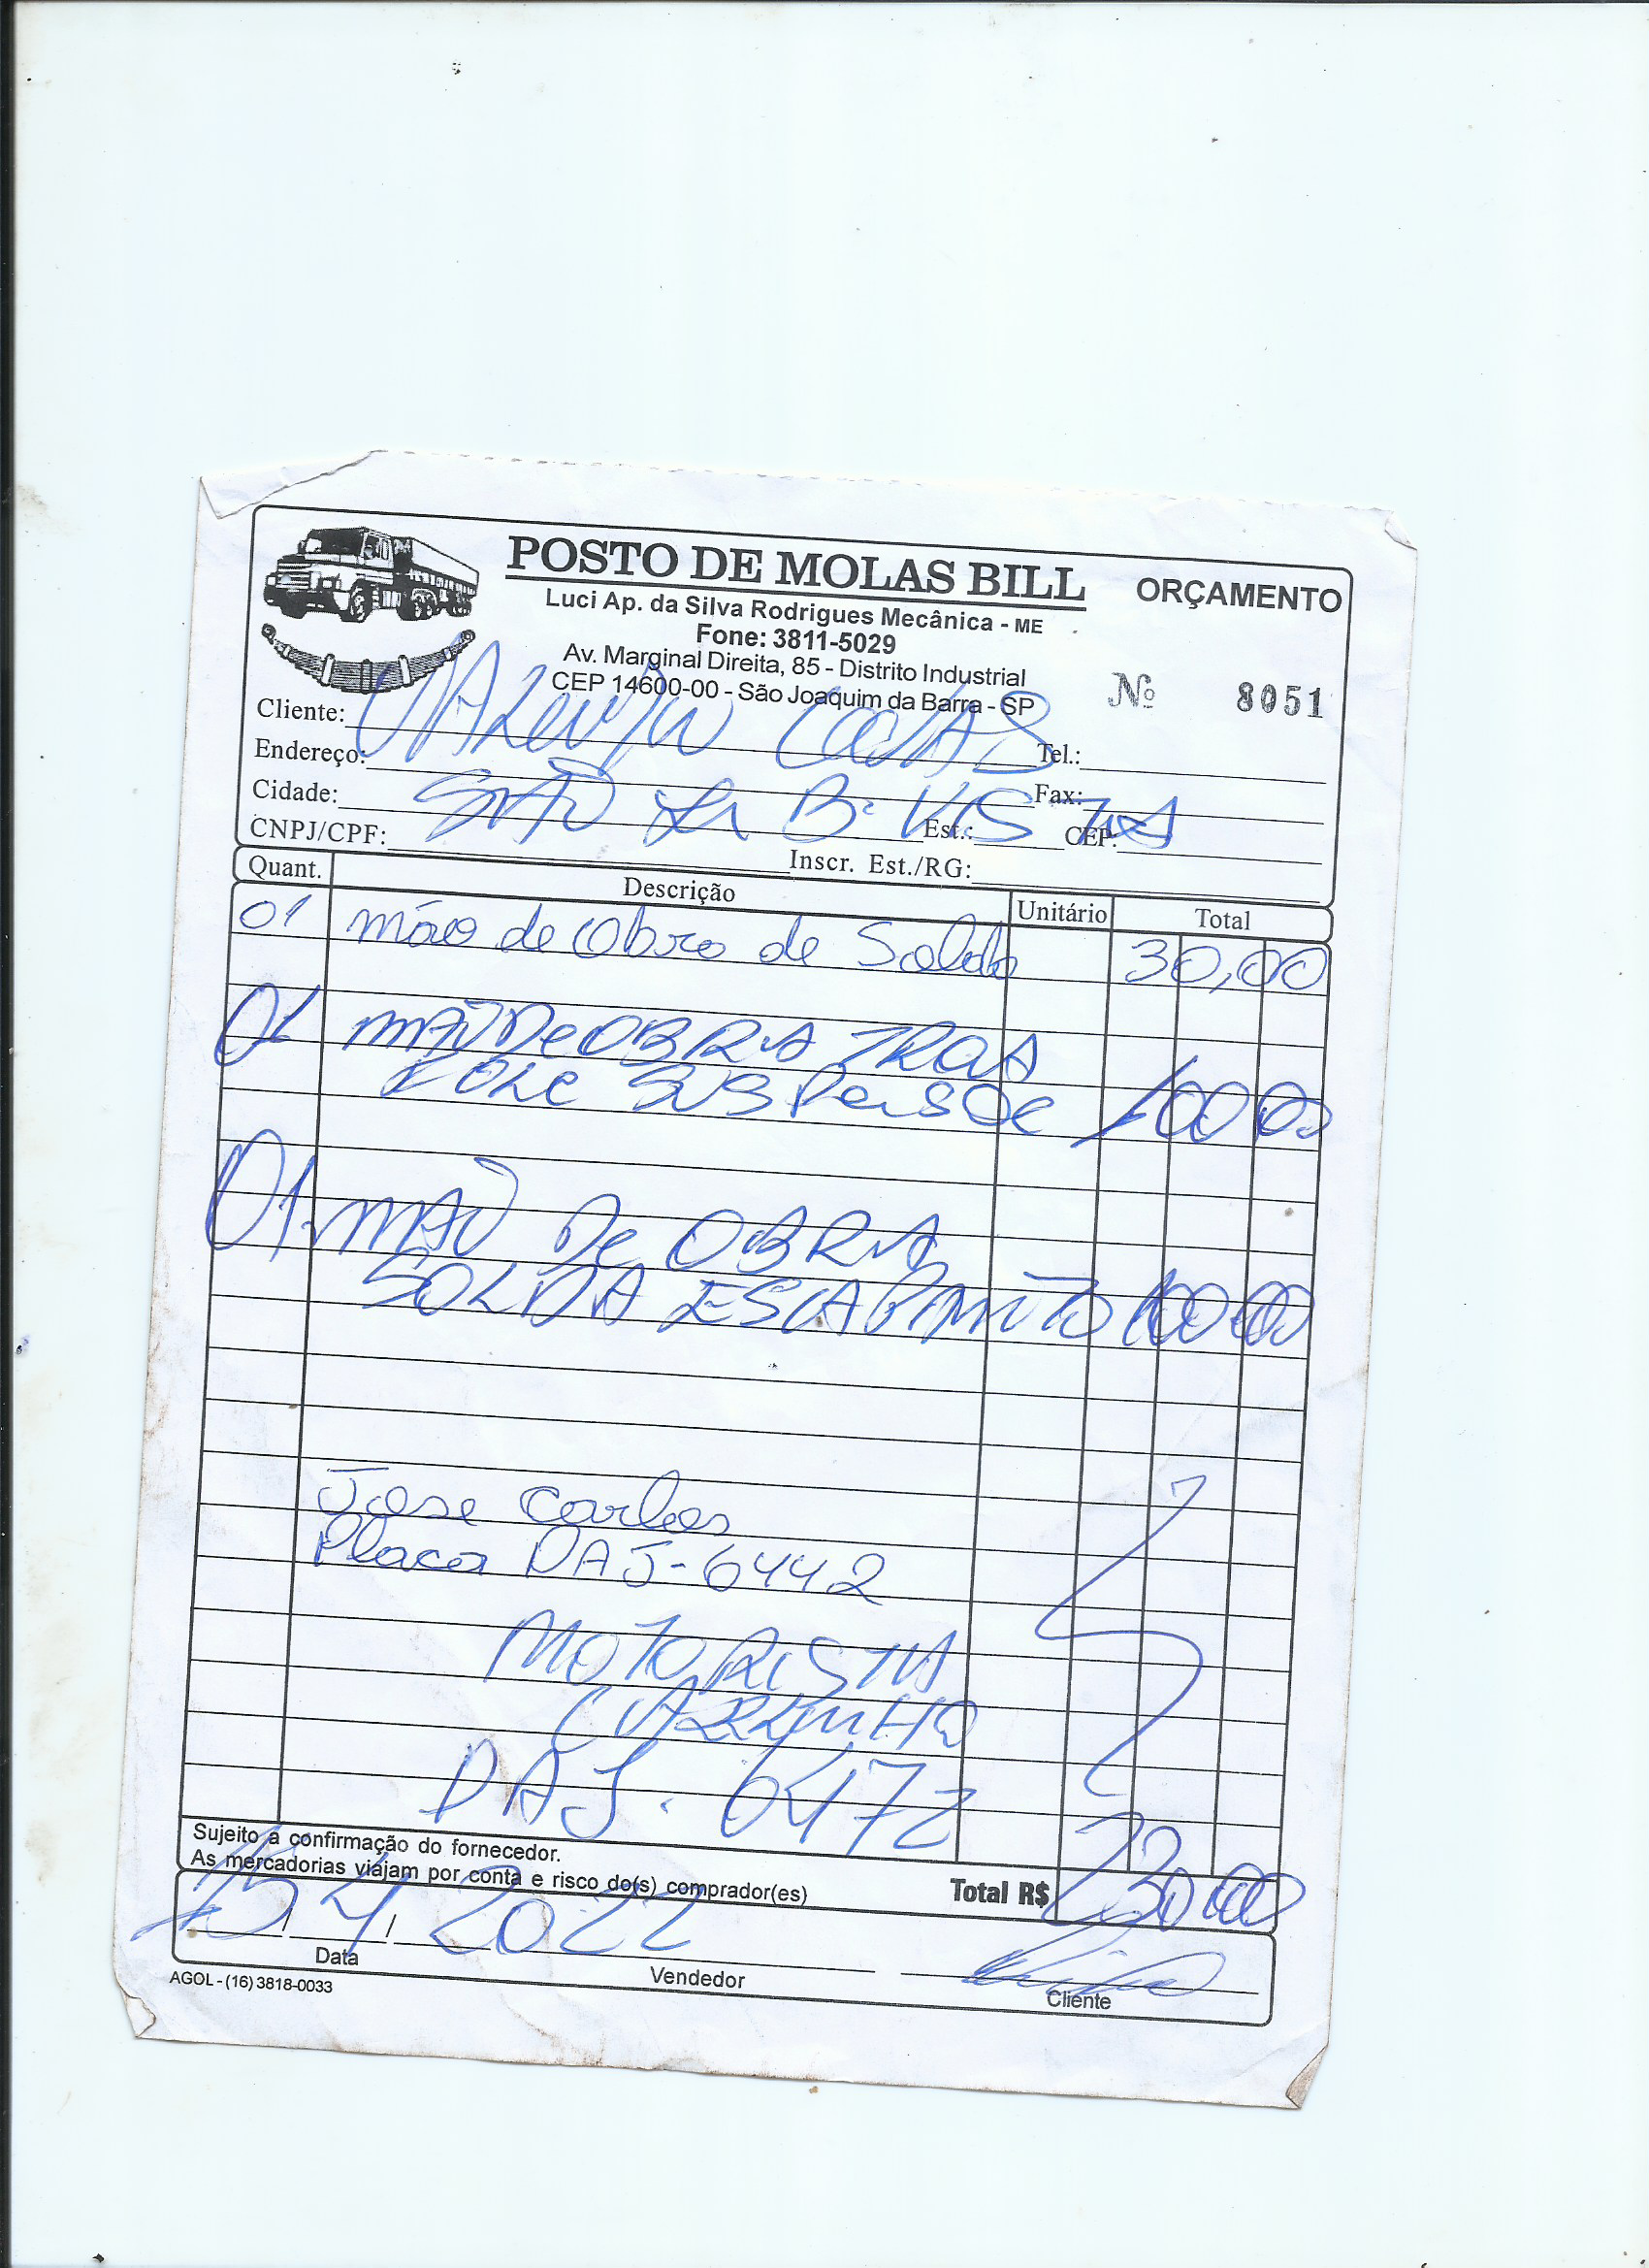 POSTO DE MOLAS BILL
ORÇAMENTO
Luci Ap. da Silva Rodrigues Mecânica - ME
Fone: 3811-5029
Av. Marginal Direita, 85 - Distrito Industrial
CEP 14600-00 - São Joaquim da Barra - SP
Nº 8051
Cliente: Tel.:
Endereço: Fax:
Cidade: B. VISTA Est.: CEP:
CNPJ/CPF: Inscr. Est./RG:
Quant. Descrição Unitário Total
01 mão de Obra de Solda 30,00
01 MÃO De OBRA
100 00
01 MÃO De OBRA
SOLDA 100 00
Jose Carlos
Placa DAJ-6442
MOTORISTA
DAJ. 6472
Sujeito a confirmação do fornecedor.
As mercadorias viajam por conta e risco do(s) comprador(es)
Total R$ 230 00
15 / 4 / 2022
Data Vendedor Cliente
AGOL - (16) 3818-0033